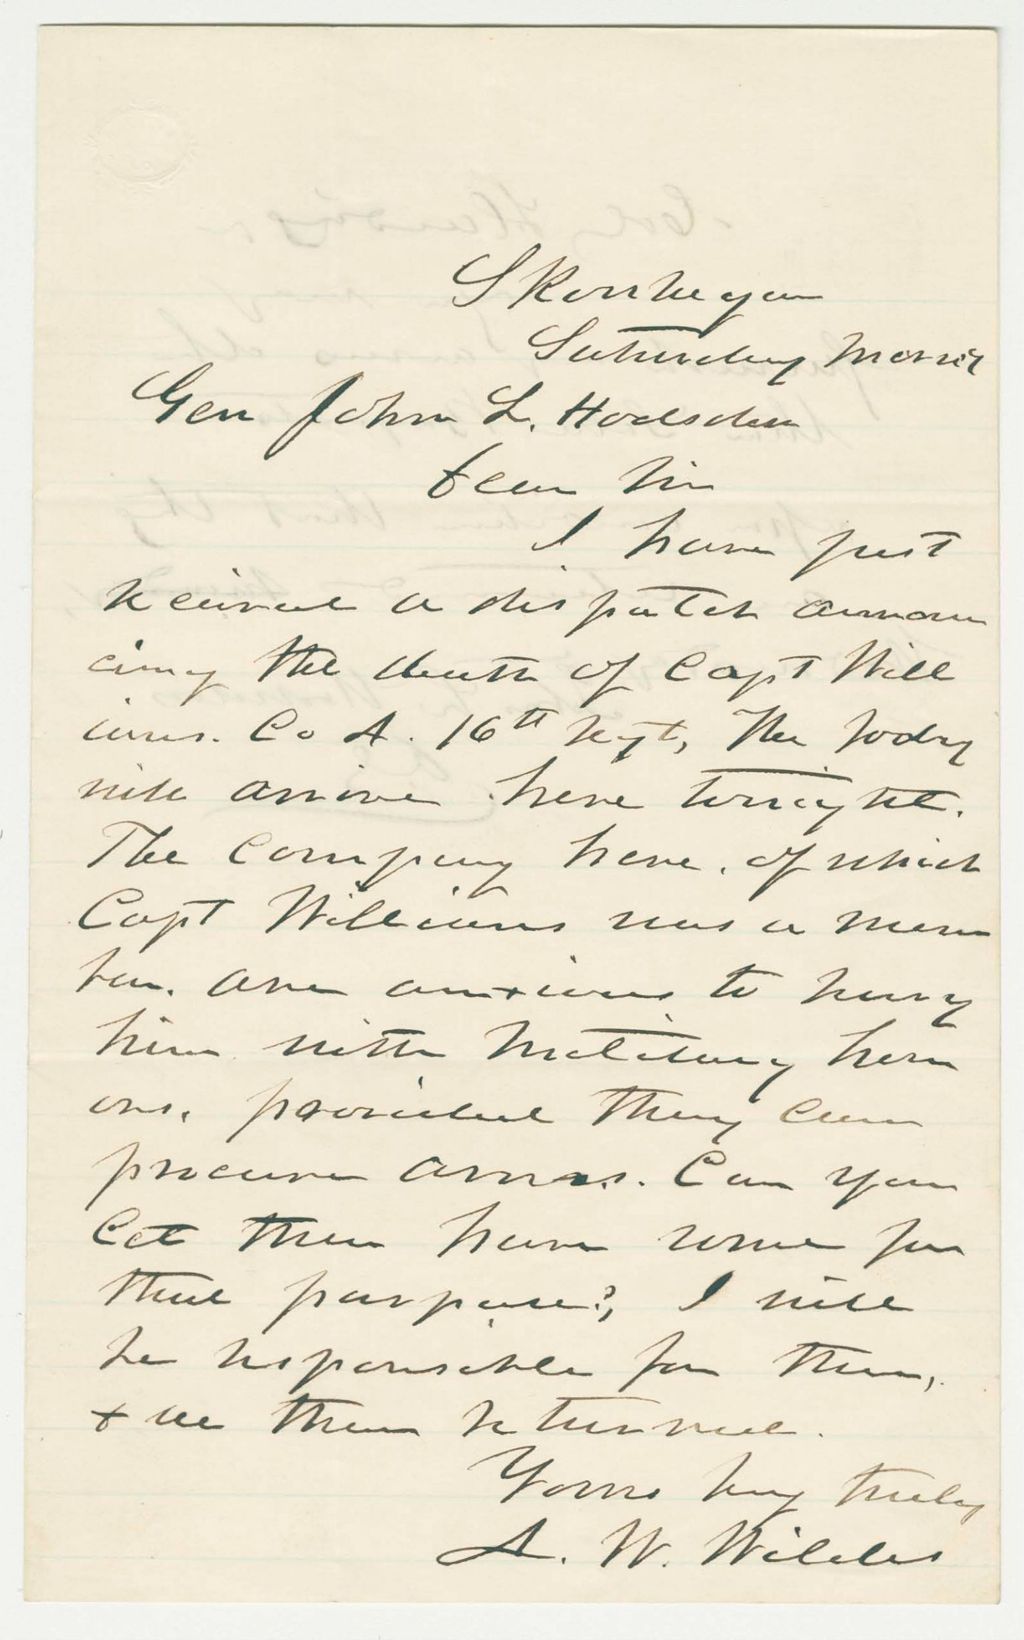 Skowhegan
Saturday Morn'g
Gen John L. Hodsdon
Dear Sir
I have just
received a dispatch announ
cing the death of Capt Will
iams. Co A. 16th Regt, The body
will arrive here tonight.
The Company here, of which
Capt Williams was a mem
ber. are anxious to bury
him with Military hon
ors, provided they can
procure arms. Can you
let them have some for
that purpose?, I will
be responsible for them,
+ see them returned.
Yours very truly
A. W. Wildes